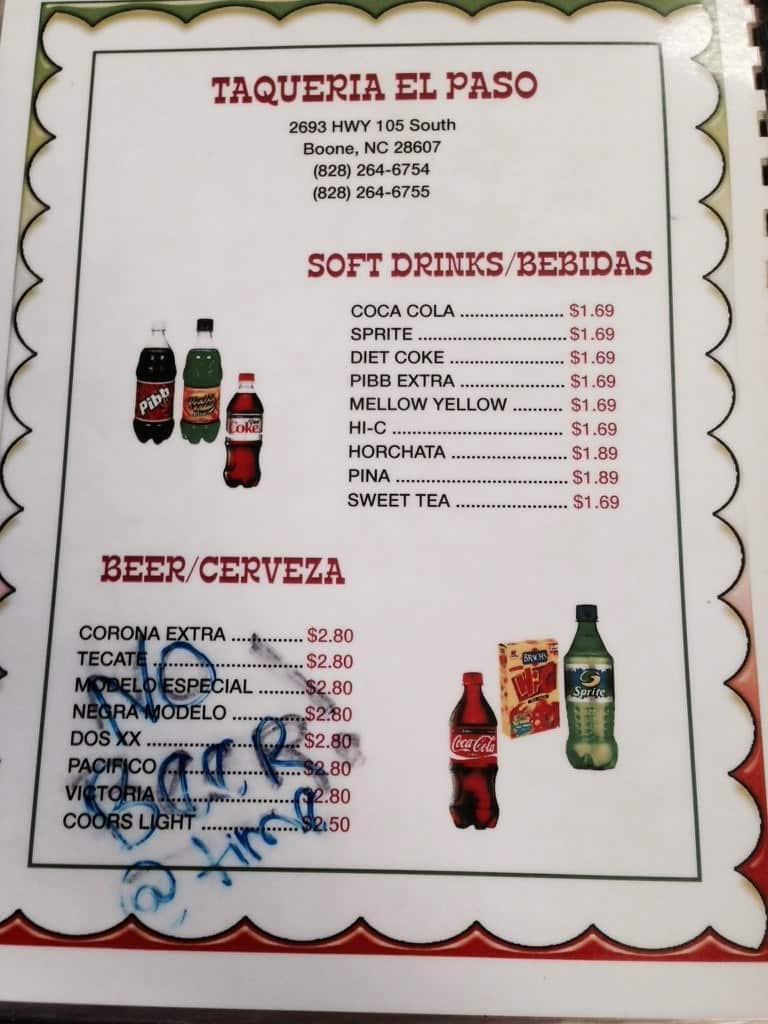 TAQUERIA EL PASO
2693 HWY 105 South
Boone, NC 28607
(828) 264-6754
(828) 264-6755
SOFT DRINKS/BEBIDAS
COCA COLA ...................... $1.69
SPRITE ................................ $1.69
DIET COKE ........................ $1.69
PIBB EXTRA ...................... $1.69
MELLOW YELLOW .......... $1.69
HI-C .................................... $1.69
HORCHATA ........................ $1.89
PINA .................................... $1.89
SWEET TEA ....................... $1.69
Pibb
Diet
Coke
BEER/CERVEZA
CORONA EXTRA ............ $2.80
TECATE ......................... $2.80
MODELO ESPECIAL ........ $2.80
NEGRA MODELO ............ $2.80
DOS XX .......................... $2.80
PACIFICO ....................... $2.80
VICTORIA ....................... $2.80
COORS LIGHT ................ $2.50
NO
BEER
@ time
BRACH'S
Hi-C
Sprite
Coca-Cola